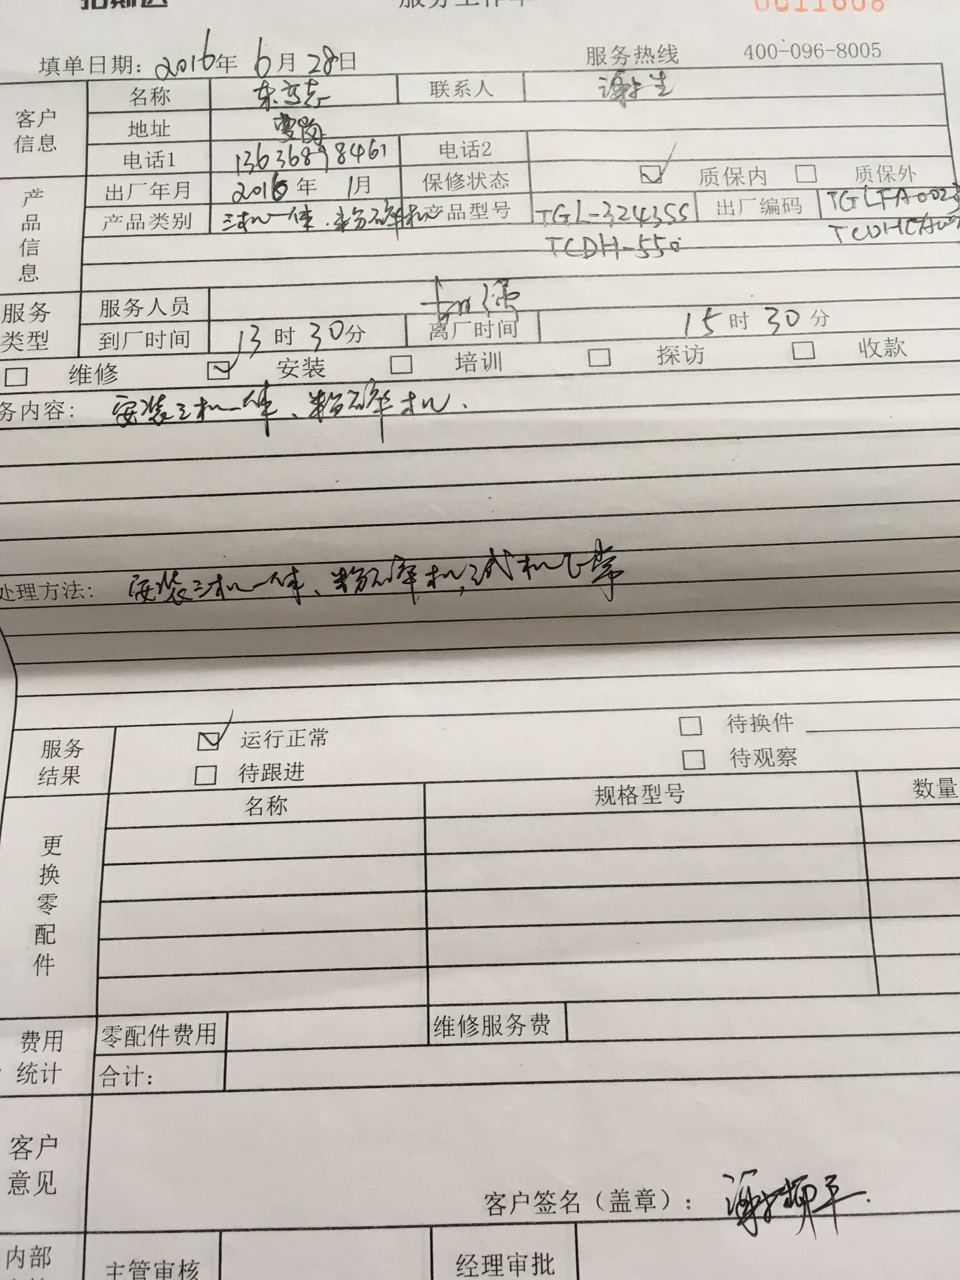 服务工作单
0011668
填单日期: 2016年 6月 28日 服务热线 400-096-8005
客户信息 名称 联系人 谢先生
地址
电话1 13636898461 电话2
产品信息 出厂年月 2016年 1月 保修状态 质保内 质保外
产品类别 三机一体、粉碎机 产品型号 TGL-32435S 出厂编码 TGLFA0023
TCDH-550 TCDHCA00
服务类型 服务人员
到厂时间 13时 30分 离厂时间 15时 30分
维修 安装 培训 探访 收款
务内容: 安装三机一体、粉碎机.
处理方法: 安装三机一体、粉碎机,试机正常
服务结果 运行正常 待换件
待跟进 待观察
更换零配件 名称 规格型号 数量
费用统计 零配件费用 维修服务费
合计:
客户意见
客户签名(盖章):
内部 主管审核 经理审批